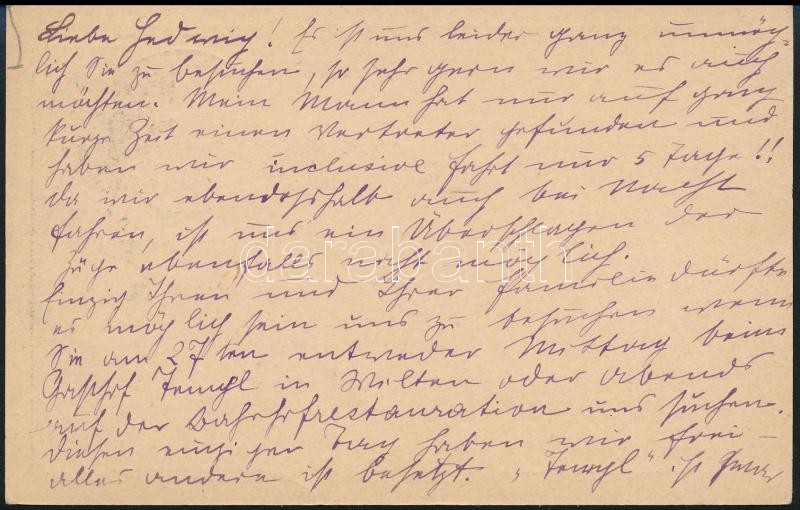 Liebe Hedwig! Es ist uns leider ganz unmög-
lich Sie zu besuchen, so sehr gern wir es auch
möchten. Mein Mann hat nur auf ganz
kurze Zeit einen Vertreter gefunden und
haben wir inclusive Fahrt nur 5 Tage!!
Da wir ebendeshalb auch bei Nacht
fahren, ist uns ein Überschlagen der
Züge ebenfalls nicht möglich.
Einzig Ihnen und Ihrer Familie dürfte
es möglich sein uns zu besuchen wenn
Sie am 27ten entweder Mittag beim
Gasthof Templ in Wilten oder abends
auf der Bahnhofrestauration uns suchen.
Diesen einzigen Tag haben wir frei –
alles andere ist besetzt. „Templ" ist
darabanth.com